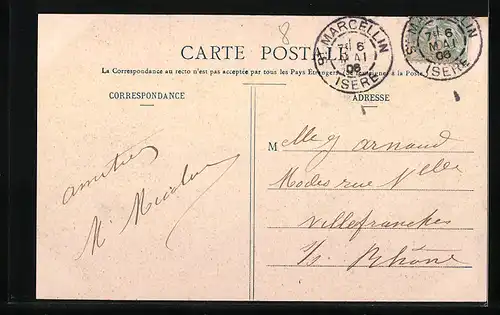 8
CARTE POSTALE
ST MARCELLIN
7E 6
MAI
06
ISERE
ST MARCELLIN
7E 6
MAI
06
ISERE
La Correspondance au recto n'est pas acceptée par tous les Pays Etrangers (Se renseigner à la Poste
CORRESPONDANCE
ADRESSE
amitiés
M
Melle J Arnaud
Modes rue Nelle
Villefranche
s/ Rhône